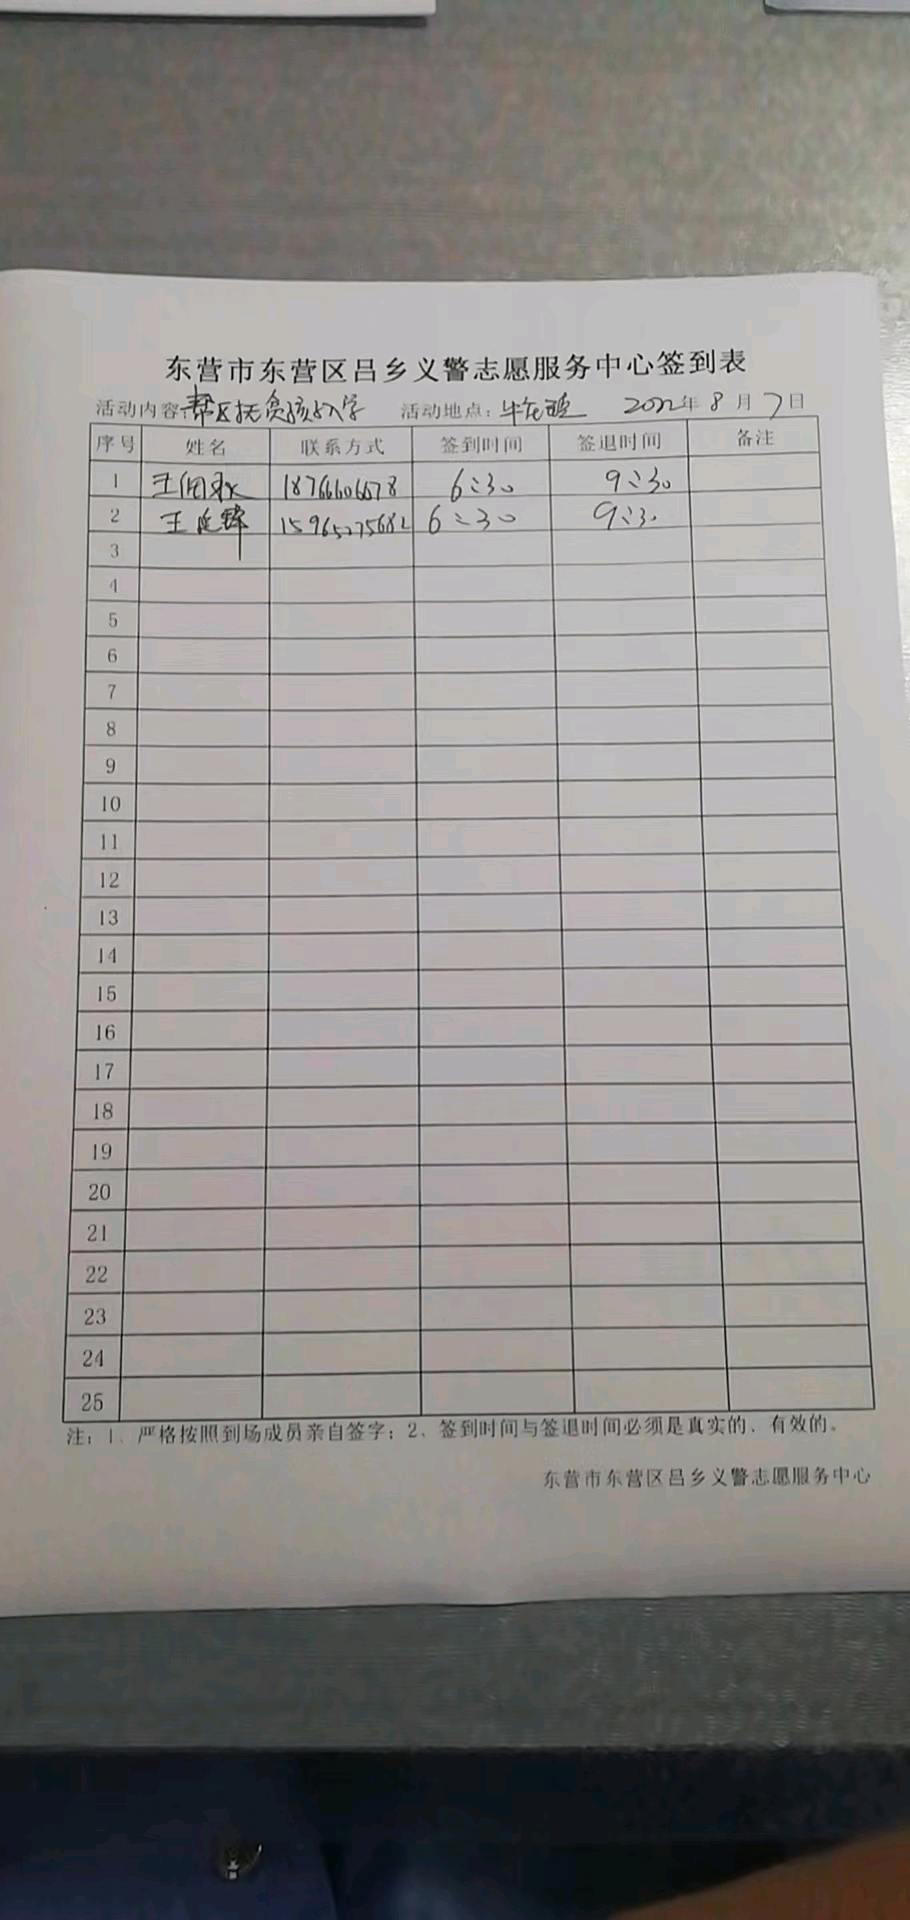 东营市东营区吕乡义警志愿服务中心签到表
活动内容: 活动地点: 2022年 8 月 7 日
序号 姓名 联系方式 签到时间 签退时间 备注
1 王 18766606678 6:30 9:30
2 王 锋 15965275682 6:30 9:30
3
4
5
6
7
8
9
10
11
12
13
14
15
16
17
18
19
20
21
22
23
24
25
注：1、严格按照到场成员亲自签字；2、签到时间与签退时间必须是真实的、有效的。
东营市东营区吕乡义警志愿服务中心